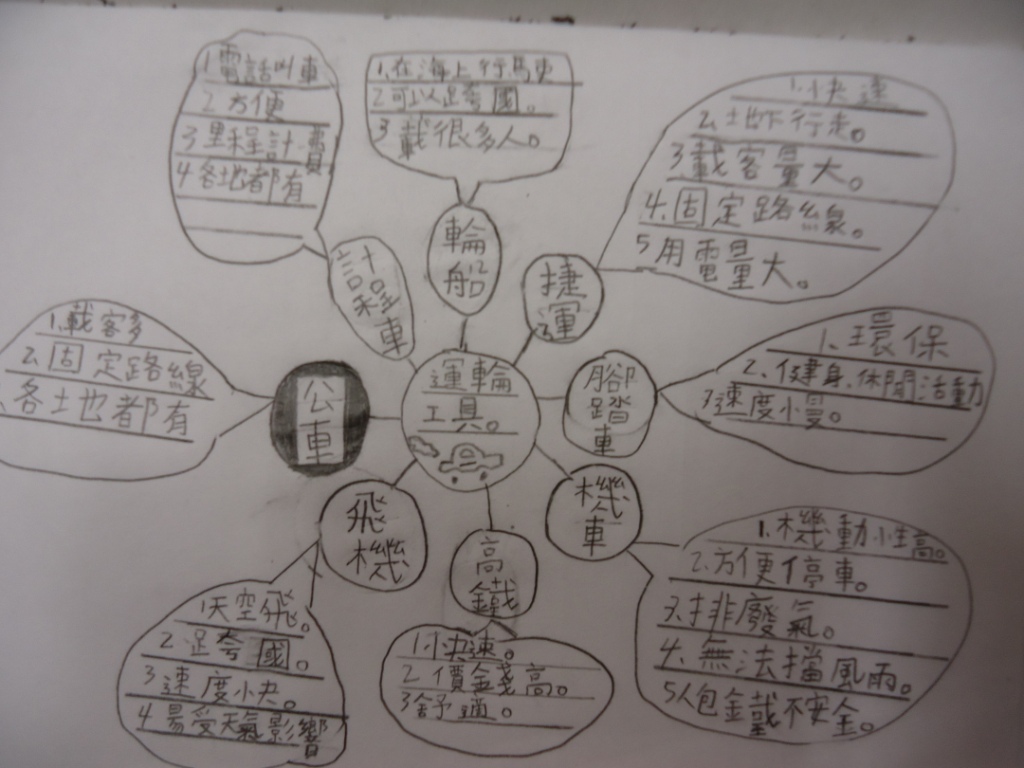 運輪
工具。
計程車
1電話叫車
2方便
3里程計費
4各地都有
輪船
1.在海上行馬史
2可以跨國。
3載很多人。
捷運
1.快速
2.地下行走。
3.載客量大。
4.固定路線。
5用電量大。
腳踏車
1.環保
2.健身、休閒活動
3速度慢。
機車
1.機動性高。
2.方便停車。
3.排廢氣。
4.無法擋風雨。
5人包鐵不安全。
高鐵
1.快速。
2價金錢高。
3舒適。
飛機
1天空飛。
2跨國。
3速度快。
4.易受天氣影響
公車
1.載客多
2.固定路線
各地都有